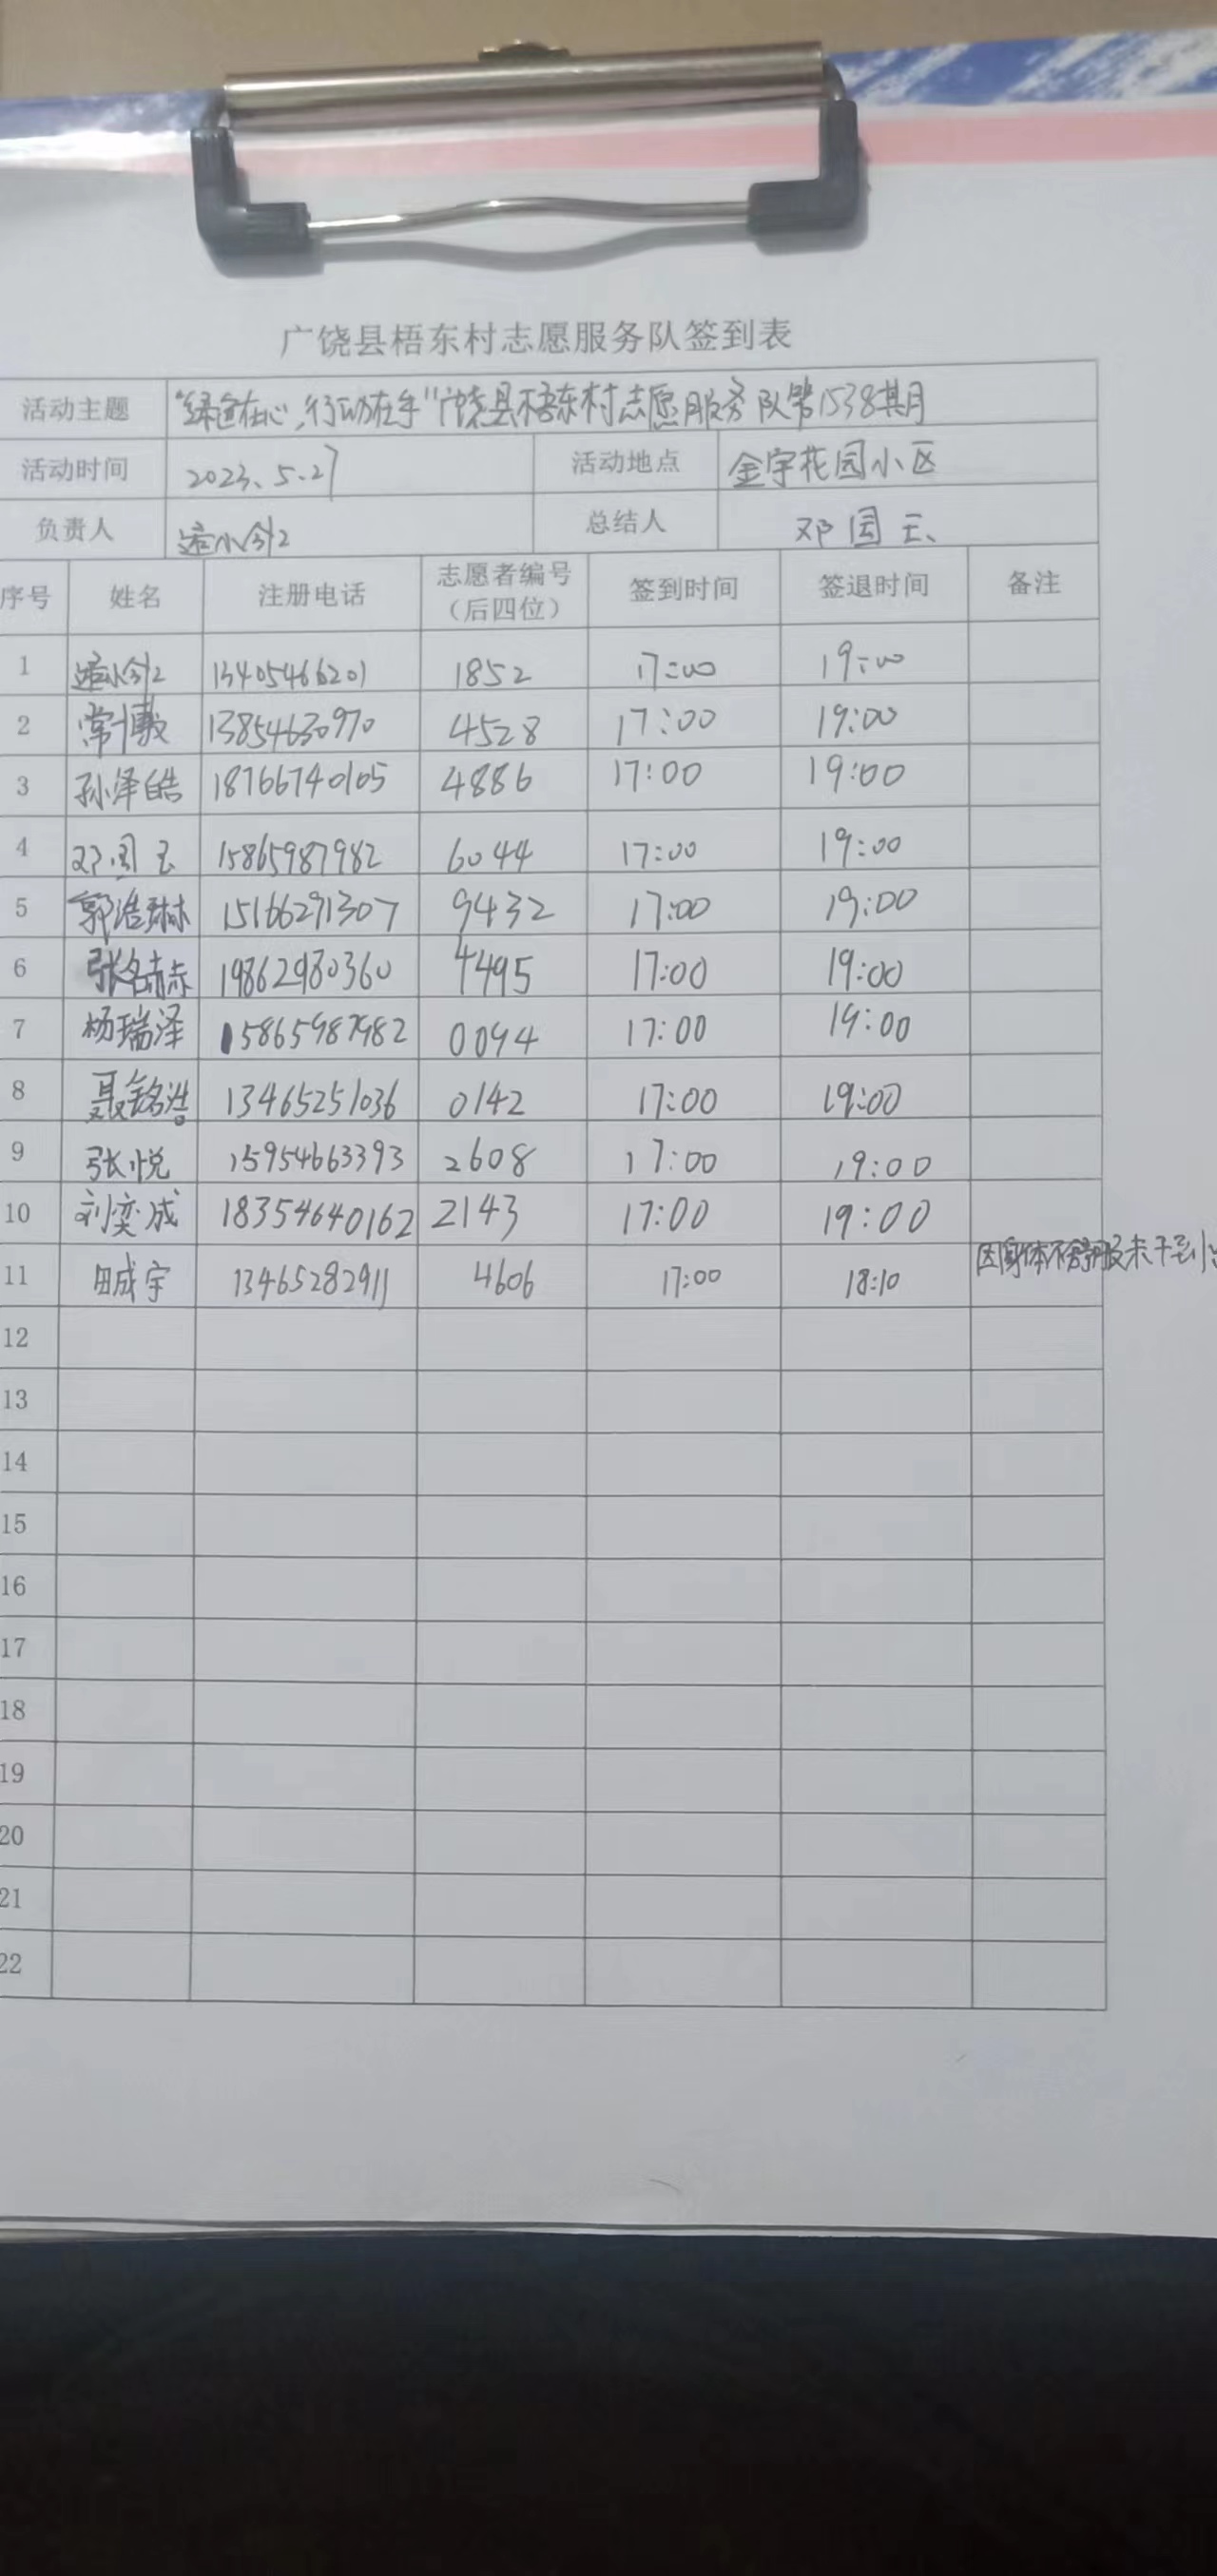 广饶县梧东村志愿服务队签到表
活动主题 “绿色在心,行动在手”广饶县梧东村志愿服务队第1538期
活动时间 2023.5.27 活动地点 金宇花园小区
负责人 总结人 邓国玉
序号 姓名 注册电话 志愿者编号(后四位) 签到时间 签退时间 备注
1 13405466201 1852 17:00 19:00
2 常博 13854630970 4528 17:00 19:00
3 孙泽皓 18766740165 4886 17:00 19:00
4 邓国玉 15865987982 6044 17:00 19:00
5 郭浩琳 15166291307 9432 17:00 19:00
6 张名赫 19862980360 4495 17:00 19:00
7 杨瑞泽 15865987982 0094 17:00 19:00
8 聂铭浩 13465251036 0142 17:00 19:00
9 张悦 15954663393 2608 17:00 19:00
10 刘奕成 18354640162 2143 17:00 19:00
11 田成宇 13465282911 4606 17:00 18:10 因身体不舒服未干到
12
13
14
15
16
17
18
19
20
21
22